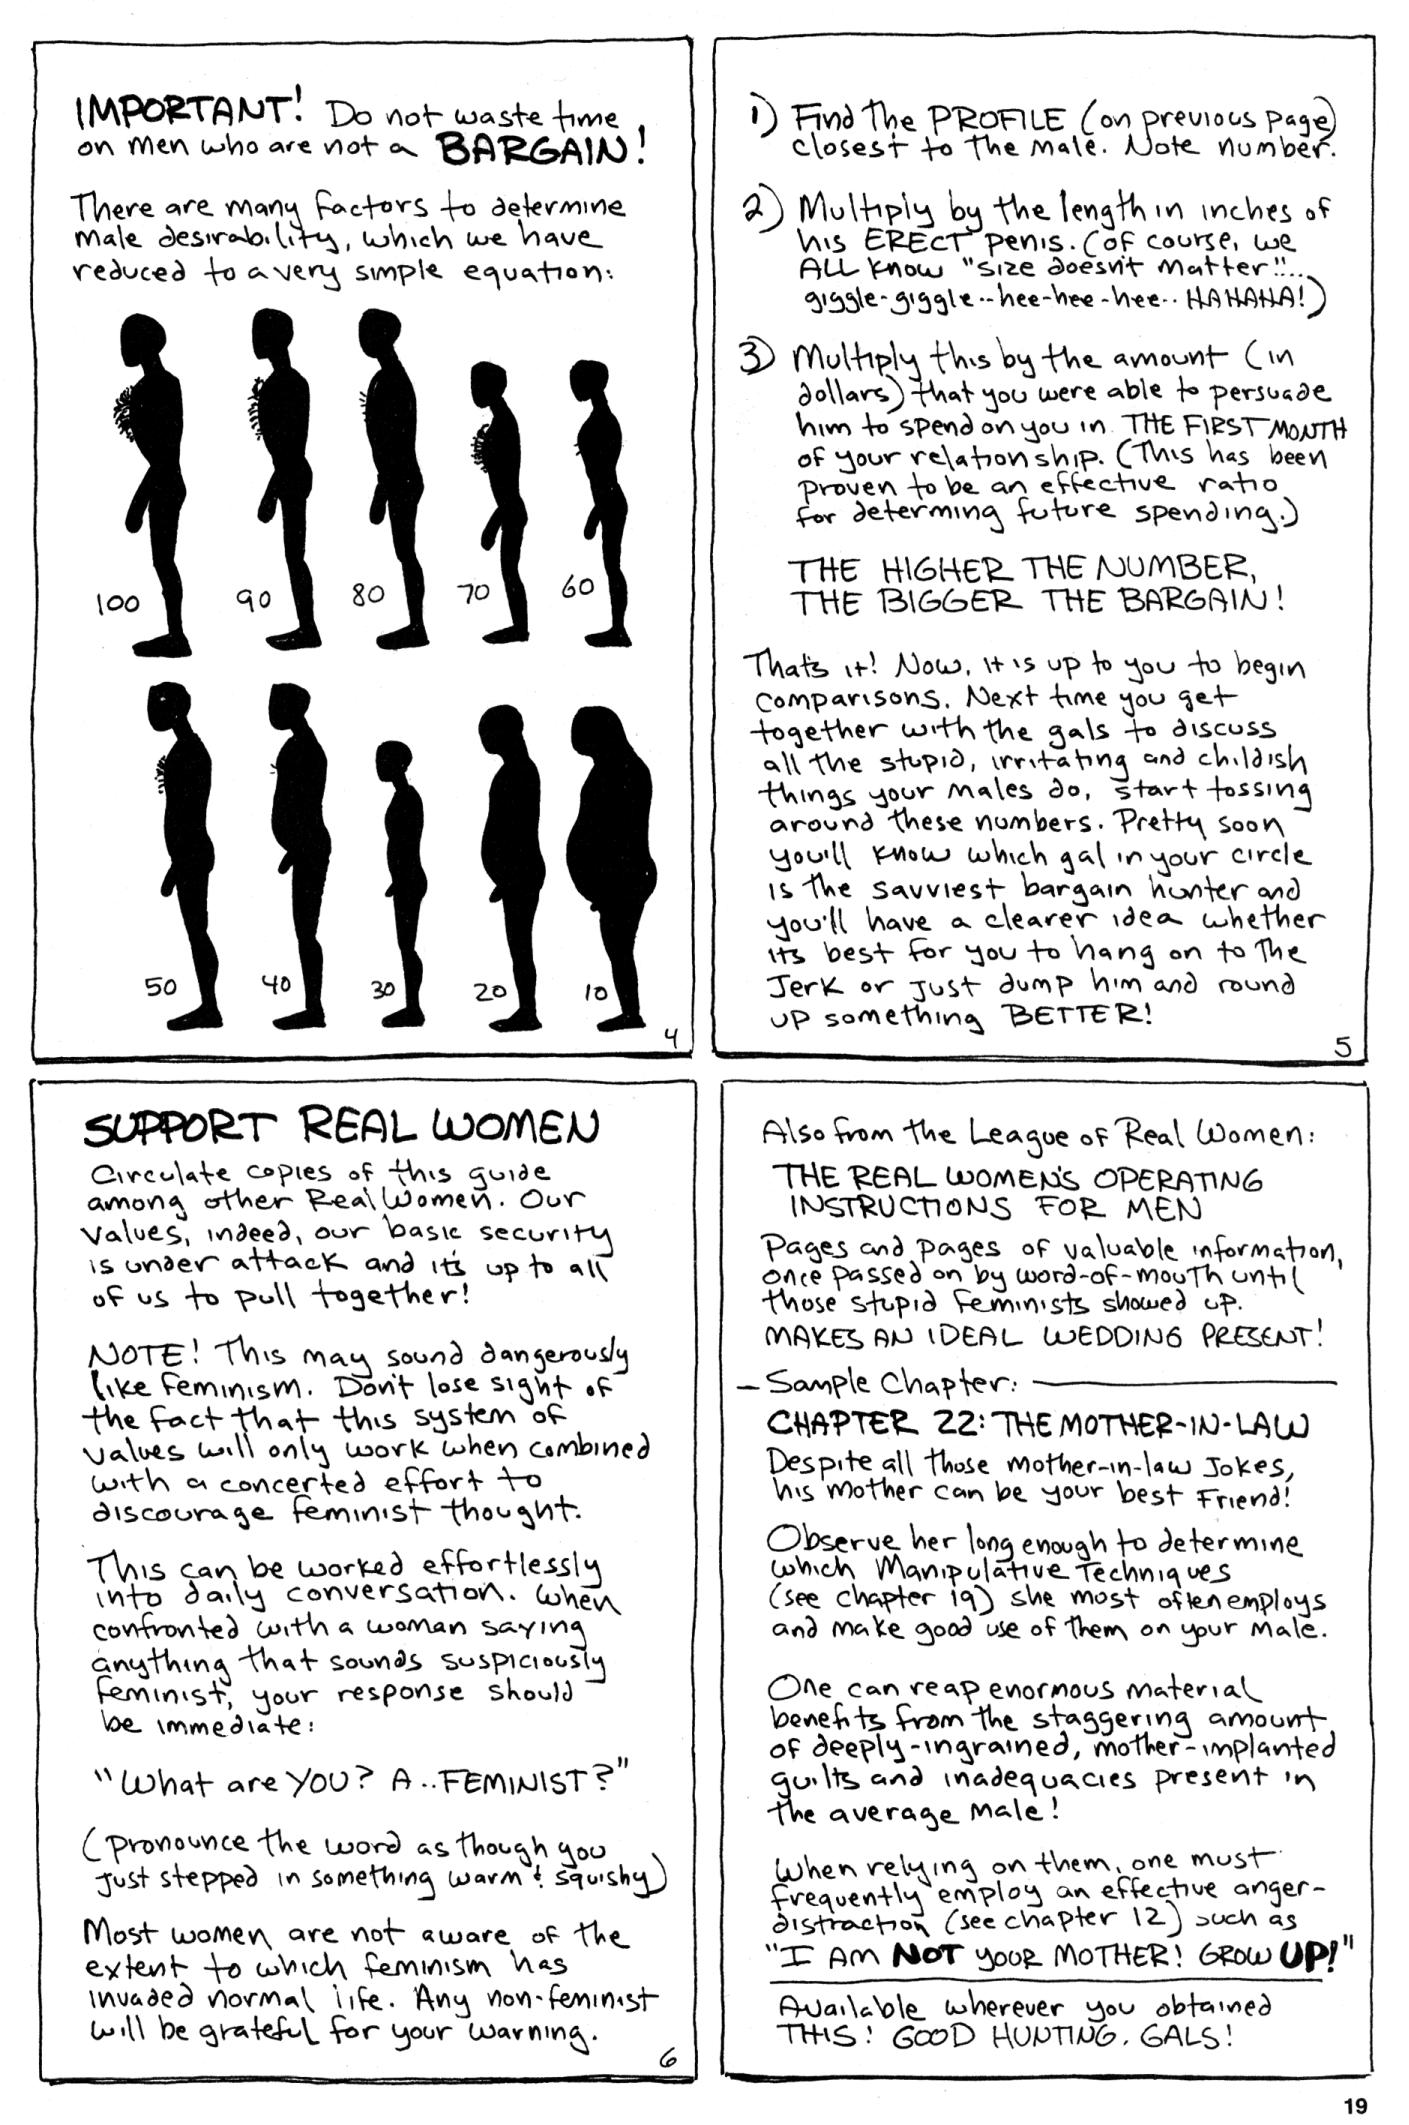 IMPORTANT! Do not waste time
on men who are not a BARGAIN!
There are many factors to determine
male desirability, which we have
reduced to a very simple equation:
100
90
80
70
60
50
40
30
20
10
4
1) Find the PROFILE (on previous page)
closest to the male. Note number.
2) Multiply by the length in inches of
his ERECT penis. (of course, we
ALL know "size doesn't matter"...
giggle-giggle..hee-hee-hee..HAHAHA!)
3) Multiply this by the amount (in
dollars) that you were able to persuade
him to spend on you in THE FIRST MONTH
of your relationship. (This has been
proven to be an effective ratio
for determing future spending.)
THE HIGHER THE NUMBER,
THE BIGGER THE BARGAIN!
That's it! Now, it is up to you to begin
comparisons. Next time you get
together with the gals to discuss
all the stupid, irritating and childish
things your males do, start tossing
around these numbers. Pretty soon
you'll know which gal in your circle
is the savviest bargain hunter and
you'll have a clearer idea whether
its best for you to hang on to the
jerk or just dump him and round
up something BETTER!
5
SUPPORT REAL WOMEN
Circulate copies of this guide
among other Real Women. Our
values, indeed, our basic security
is under attack and it's up to all
of us to pull together!
NOTE! This may sound dangerously
like feminism. Don't lose sight of
the fact that this system of
values will only work when combined
with a concerted effort to
discourage feminist thought.
This can be worked effortlessly
into daily conversation. When
confronted with a woman saying
anything that sounds suspiciously
feminist, your response should
be immediate:
"What are YOU? A..FEMINIST?"
(pronounce the word as though you
just stepped in something warm & squishy)
Most women are not aware of the
extent to which feminism has
invaded normal life. Any non-feminist
will be grateful for your warning.
6
Also from the League of Real Women:
THE REAL WOMEN'S OPERATING
INSTRUCTIONS FOR MEN
Pages and pages of valuable information,
once passed on by word-of-mouth until
those stupid feminists showed up.
MAKES AN IDEAL WEDDING PRESENT!
- Sample Chapter:
CHAPTER 22: THE MOTHER-IN-LAW
Despite all those mother-in-law jokes,
his mother can be your best friend!
Observe her long enough to determine
which Manipulative Techniques
(see chapter 19) she most often employs
and make good use of them on your male.
One can reap enormous material
benefits from the staggering amount
of deeply-ingrained, mother-implanted
guilts and inadequacies present in
the average male!
When relying on them, one must
frequently employ an effective anger-
distraction (see chapter 12) such as
"I AM NOT YOUR MOTHER! GROW UP!"
Available wherever you obtained
THIS! GOOD HUNTING, GALS!
19